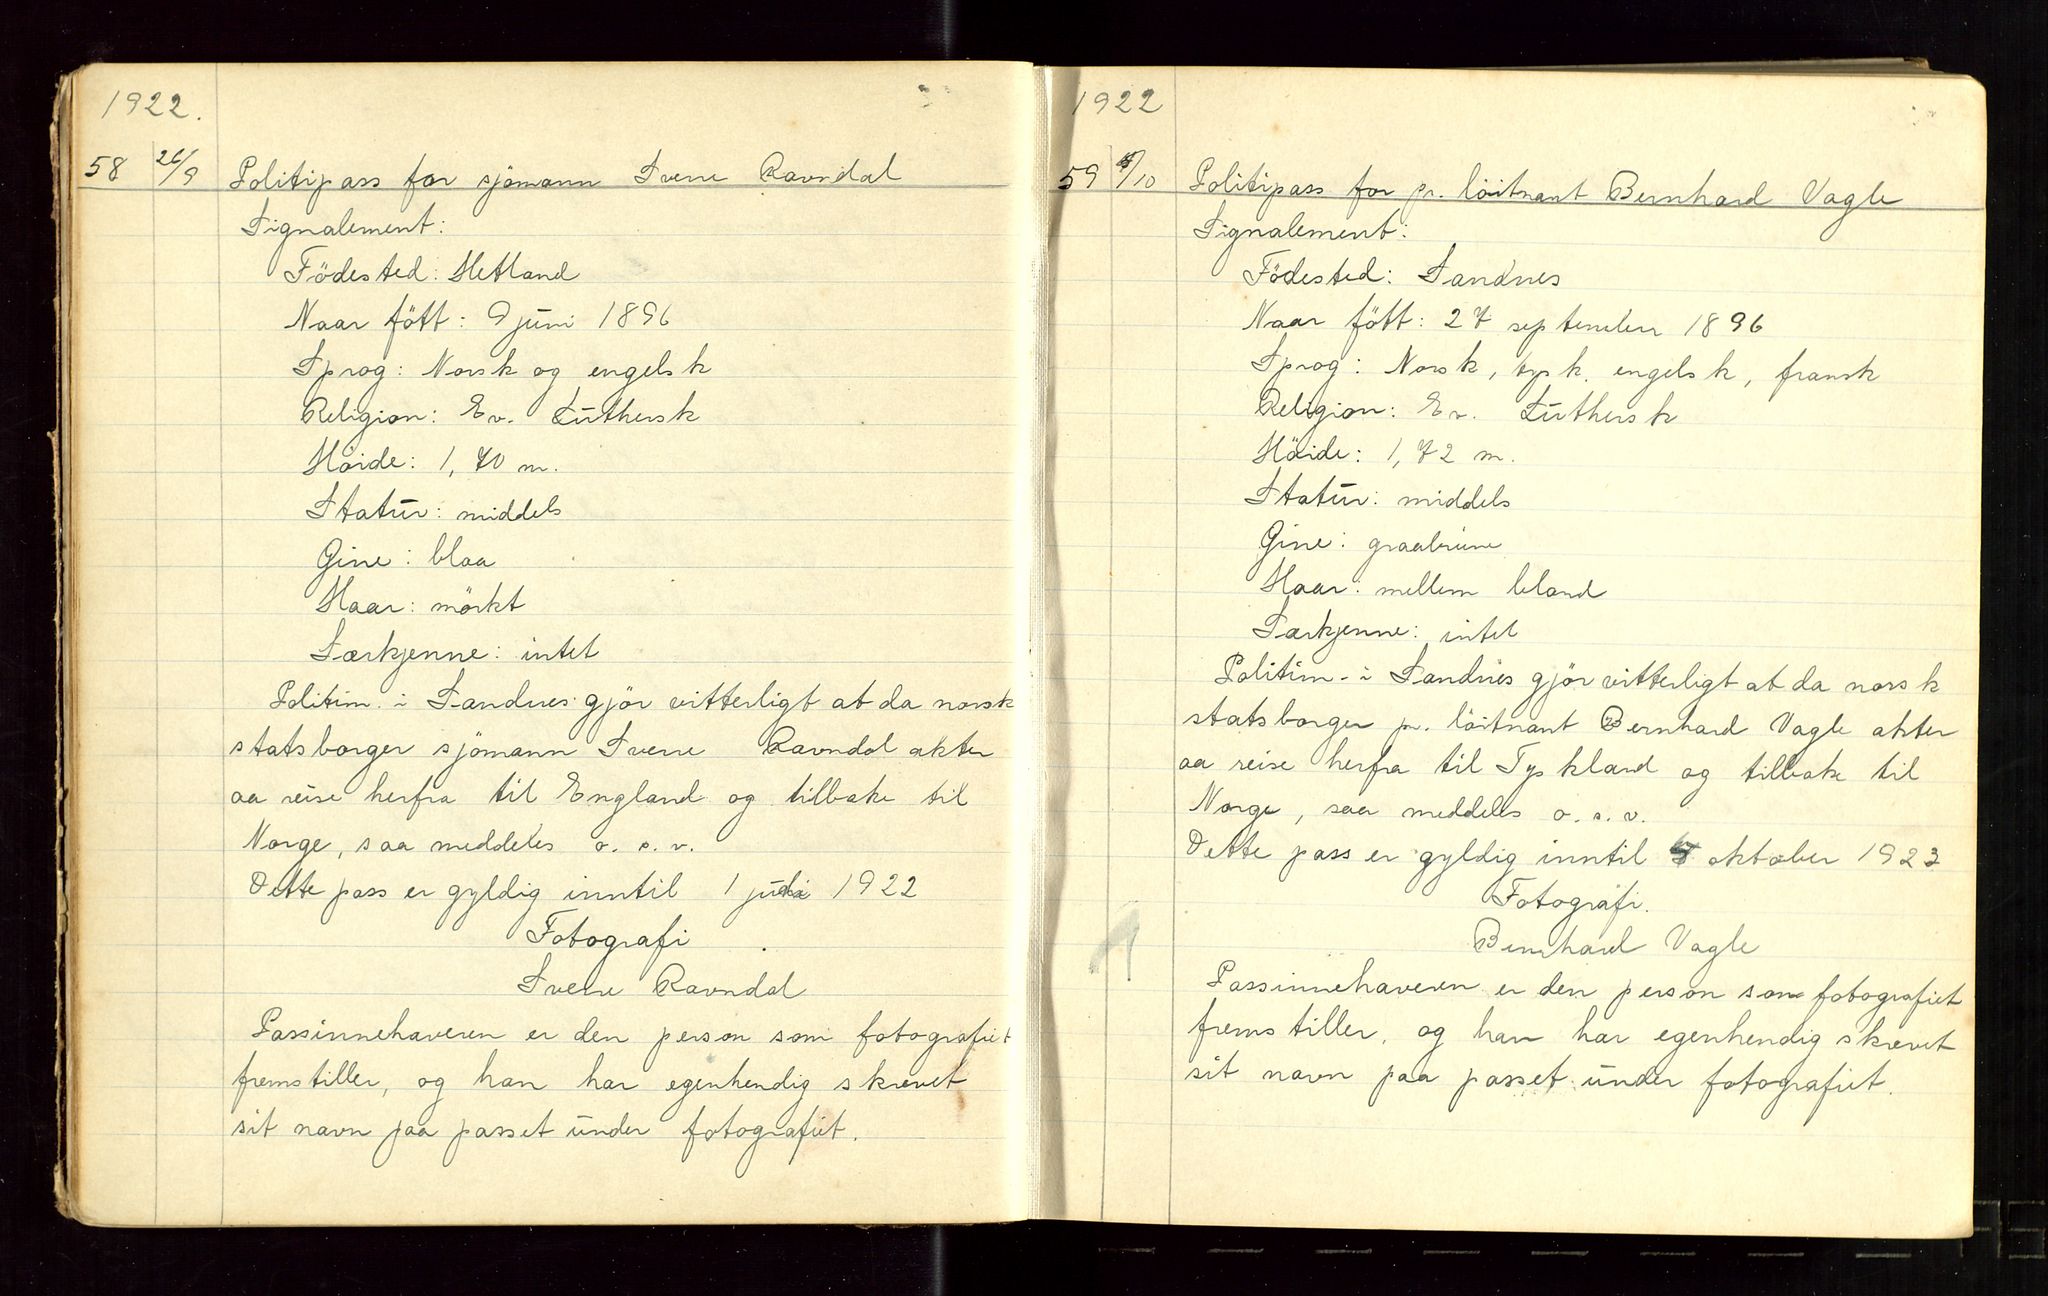 1922.
58 26/9 Politipass for sjömann Sverre Ravndal
Signalement:
Födested: Hetland
Naar fött: 9 juni 1896
Sprog: Norsk og engelsk
Religion: Ev. Luthersk
Höide: 1,70 m.
Statur: middels
Öine: blaa
Haar: mörkt
Særkjenne: intet
Politim. i Sandnes gjör vitterligt at da norsk
statsborger sjömann Sverre Ravndal akter
aa reise herfra til England og tilbake til
Norge, saa meddeles o. s. v.
Dette pass er gyldig inntil 1 1922
Fotografi
Sverre Ravndal
Passinnehaveren er den person som fotografiet
fremstiller, og han har egenhendig skrevet
sit navn paa passet under fotografiet.
1922
59 /10 Politipass for pr. löitnant Bernhard Vagle
Signalement:
Födested: Sandnes
Naar fött: 27 september 1896
Sprog: Norsk, tysk, engelsk, fransk
Religion: Ev. Luthersk
Höide: 1,72 m.
Statur: middels
Öine: graabrune
Haar: mellem blond
Særkjenne: intet
Politim. i Sandnes gjör vitterligt at da norsk
statsborger pr. löitnant Bernhard Vagle akter
aa reise herfra til Tyskland og tilbake til
Norge, saa meddeles o. s. v.
Dette pass er gyldig inntil oktober 1923
Fotografi.
Bernhard Vagle
Passinnehaveren er den person som fotografiet
fremstiller, og han har egenhendig skrevet
sit navn paa passet under fotografiet.